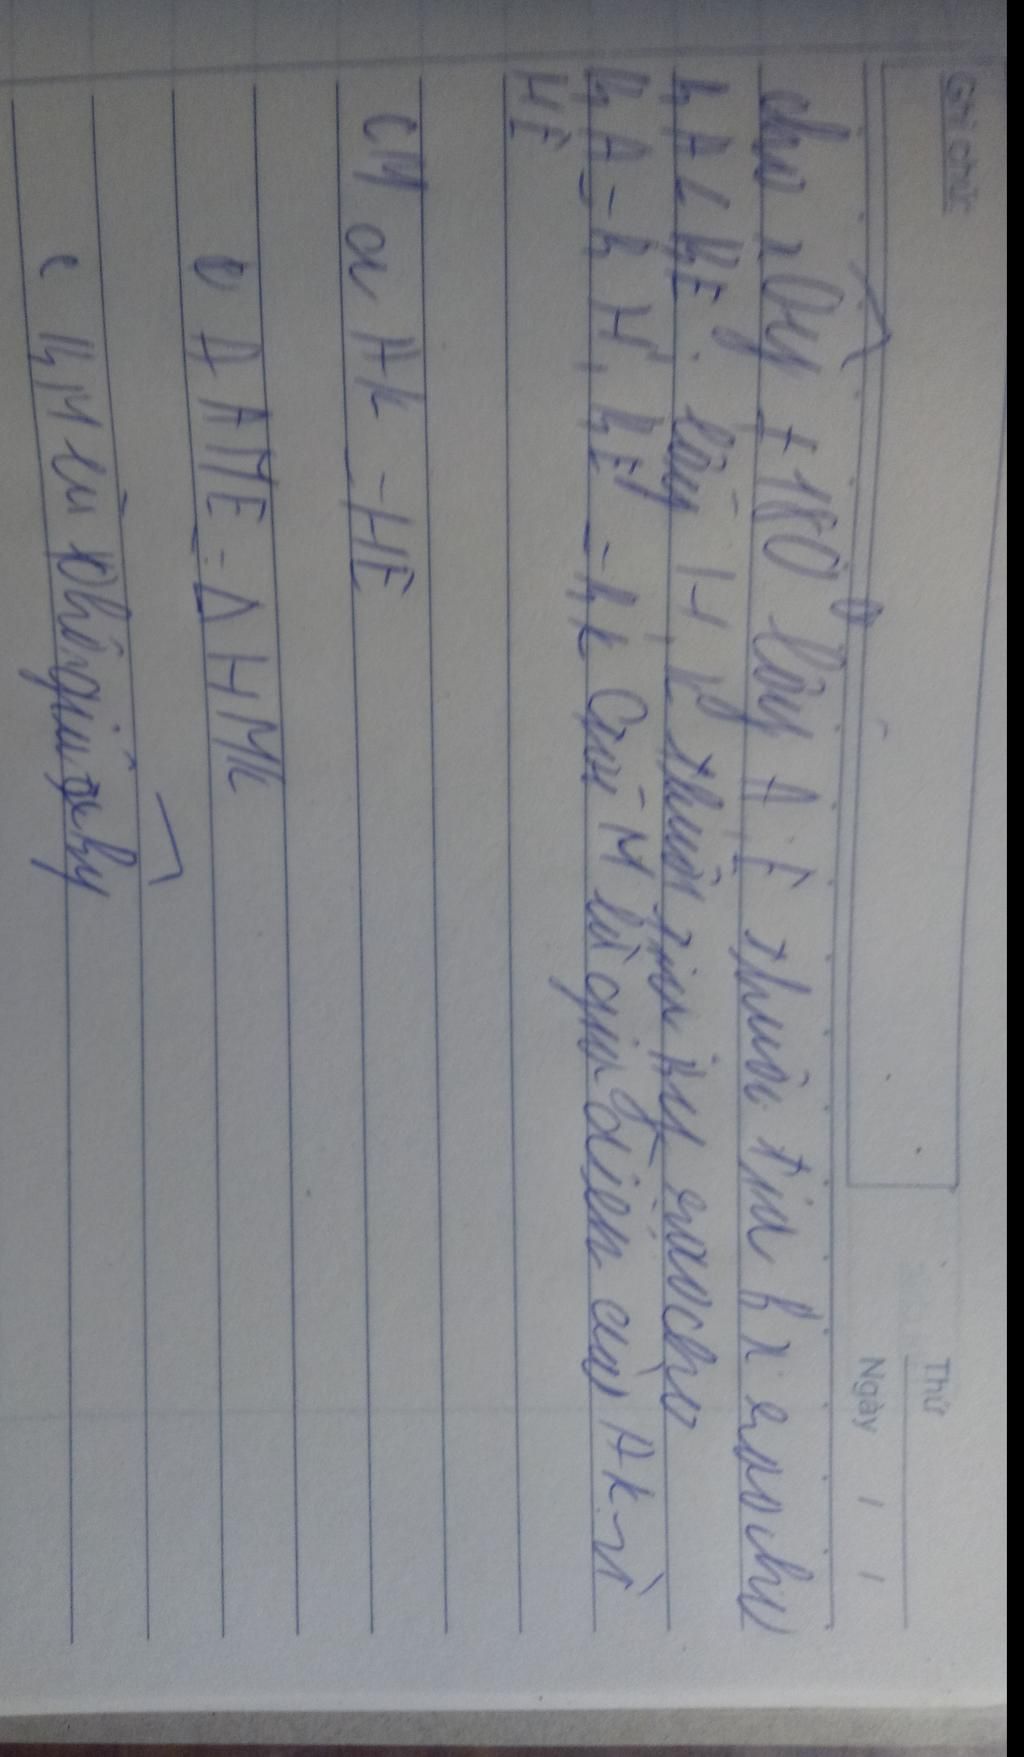 Ghi chú:
Thứ
Ngày / /
cho xOy ≠ 180⁰ lấy A, E thuộc tia hx sao cho
hA < hE. lấy H, k thuộc tia hy sao cho
hA = hH, hE = hk Gọi M là giao điểm của Ak và
HE
CM a Ak = HE
b Δ AME = Δ HMk
c hM là phân giác xhy